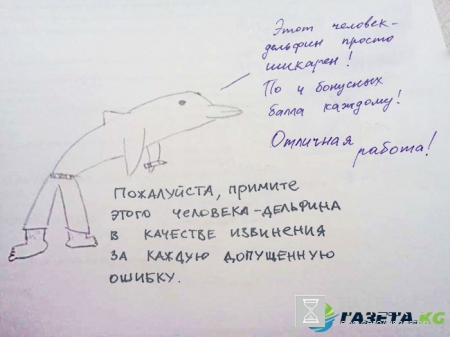 Этот человек-
дельфин просто
шикарен!
По 4 бонусных
балла каждому!
Отличная
работа!
Пожалуйста, примите
этого человека-дельфина
в качестве извинения
за каждую допущенную
ошибку.
ГАЗЕТА.KG